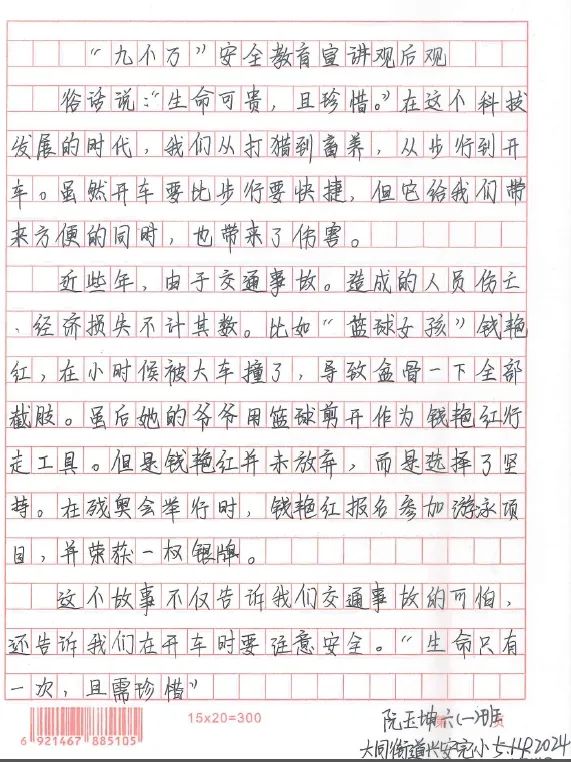 “九个万”安全教育宣讲观后观
俗话说：“生命可贵，且珍惜。”在这个科技
发展的时代，我们从打猎到畜养，从步行到开
车。虽然开车要比步行要快捷，但它给我们带
来方便的同时，也带来了伤害。
近些年，由于交通事故。造成的人员伤亡
、经济损失不计其数。比如“篮球女孩”钱艳
红，在小时候被大车撞了，导致盆骨一下全部
截肢。虽后她的爷爷用篮球剪开作为钱艳红行
走工具。但是钱艳红并未放弃，而是选择了坚
持。在残奥会举行时，钱艳红报名参加游泳项
目，并荣获一枚银牌。
这个故事不仅告诉我们交通事故的可怕，
还告诉我们在开车时要注意安全。“生命只有
一次，且需珍惜”
15×20=300
阮玉坤六(一)班
6 921467 885105
大同街道兴安完小 5.149.2024